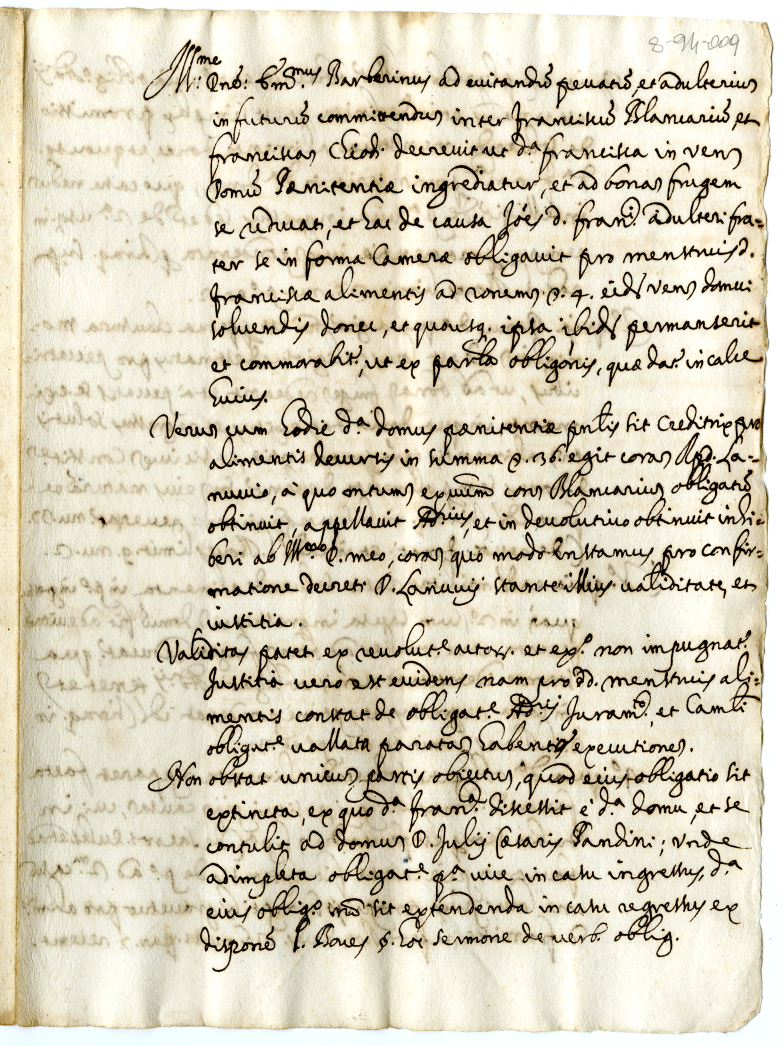 8-94-009
Ill.me
Dne: Em.mus Barberinus ad evitandũ peccatũ, et adulterium
in futurũ committendum inter Franciscũ Blancariũ, et
Franciscam Chiod. decrevit ut d.a Francisca in ven.
Domũ Pænitentiæ ingrediatur, et ad bonam frugem
se reducat, et hac de causa Joẽs d. Fran.ci adulteri fra=
ter se in forma Cameræ obligavit pro menstruis d.
Franciscæ alimentis ad rationem 4. eid. ven. domui
solvendis donec, et quousq. ipsa ibid. permanserit
et commorabit.r, ut ex par.la obligõnis, quæ dat.r in calce
huius.
Verum cum hodie d.a domus pænitentiæ pñtis sit Creditrix pro
alimentis decursis in summa 36. egit coram R.p.d. La=
nuvio, a quo mtum exivum cont. Blancarium obligatũ
obtinuit, appellavit Ad.rius, et in devolutivo obtinuit inhi=
beri ab Ill.mo D. meo, coram quo modo instamus pro confir=
matione decreti D. Lanuvij stante illius validitate, et
iustitia.
Validitas patet ex revolut.e actor. et ex.o non impugnat.r
Justitia vero est evidens nam pro dd. menstruis ali=
mentis constat de obligat.e Ad.rij Juram.o, et Camli
obligat.e vallata paratam habentis executionem.
Non obstat unicus partis obiectus, quod eius obligatio sit
extincta, ex quo d.a Fran.ca discessit è d.a domu, et se
contulit ad domum D. Julij Cæsaris Pandini; unde
adimpleta obligat.e p.a vice in casu ingressus, d.a
eius oblig.o non sit extendenda in casu regressus ex
dispone l. Boves §. hoc sermone de verb. oblig.